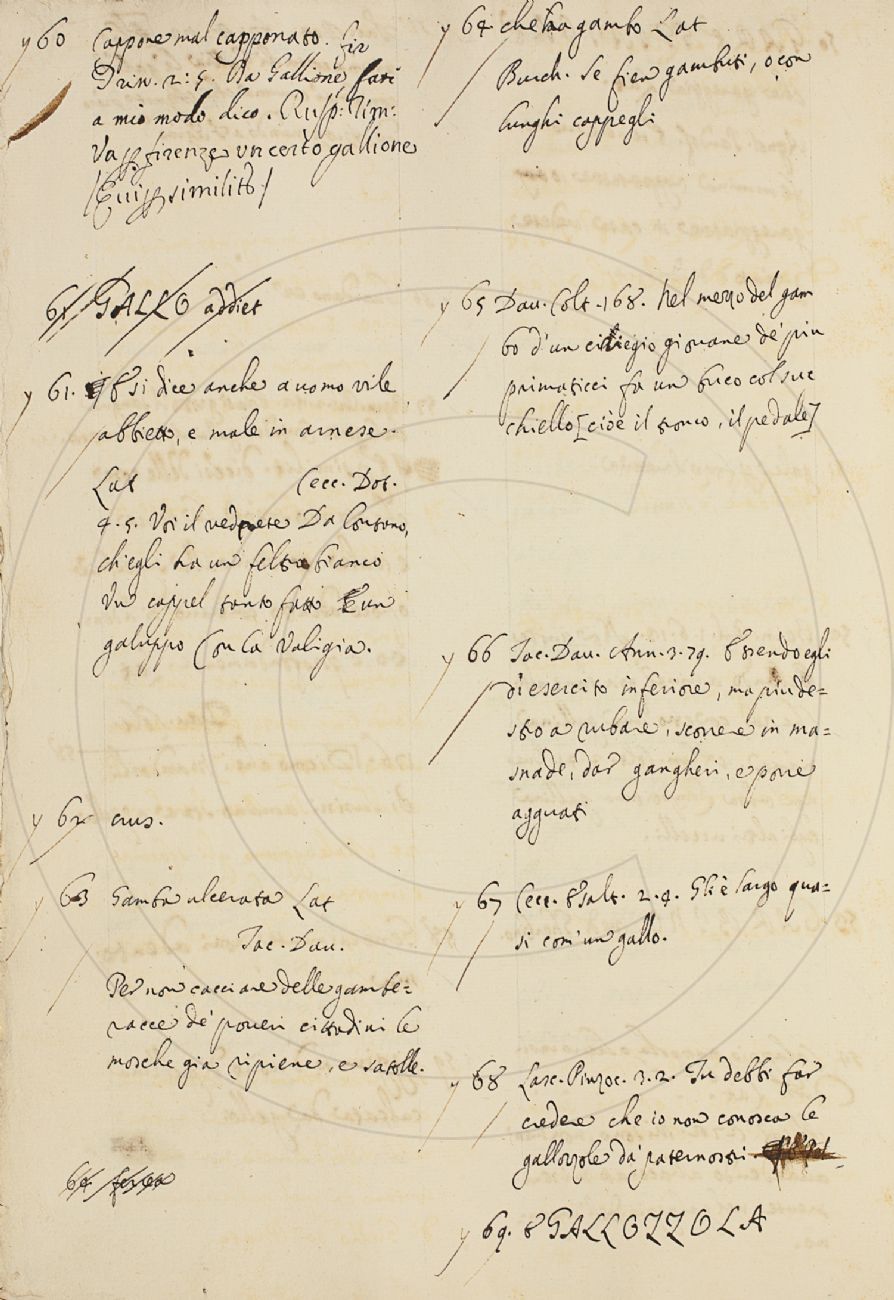 y 60 Cappone mal capponato. fir
Trin. 2: 5. Da Gallione, fati
a mio modo dico. Rusp: Tim:
Va p firenze un certo gallione
/Qui p similit:/
61 GALLO addiet
y 61. § E si dice anche a uomo vile
abbietto, e male in arnese.
Lat Cecc. Dot.
4. 5. Voi il vedrete Da lontano,
ch'egli ha un feltro bianco
Un cappel tanto fatto E un
galuppo Con la valigia.
y 62 crus.
y 63 Gamba ulcerata Lat
Tac. Dav.
Per non cacciare delle gambe=
racce de' poveri cittadini le
mosche gia ripiene, e satolle.
64
y 64 che ha gambo Lat
Burch. Se fien gambuti, o con
lunghi cappegli
y 65 Dav. Colt. 168. Nel mezzo del gam
bo d'un ciliegio giovane de' piu
primaticci fa un buco col suc
chiello [cioè il tronco, il pedale]
y 66 Tac. Dav. Ann. 3. 79. Essendo egli
di esercito inferiore, ma piu de=
stro a rubare, scorrere in ma=
snade, dar gangheri, e porre
agguati
y 67 Cecc. Esalt. 2. 4. Gli è largo qua=
si com' un gallo.
y 68 Lasc. Pinzoc. 3. 2. Tu debbi far
credere che io non conosca le
gallozzole da' paternostri.
y 69. E GALLOZZOLA